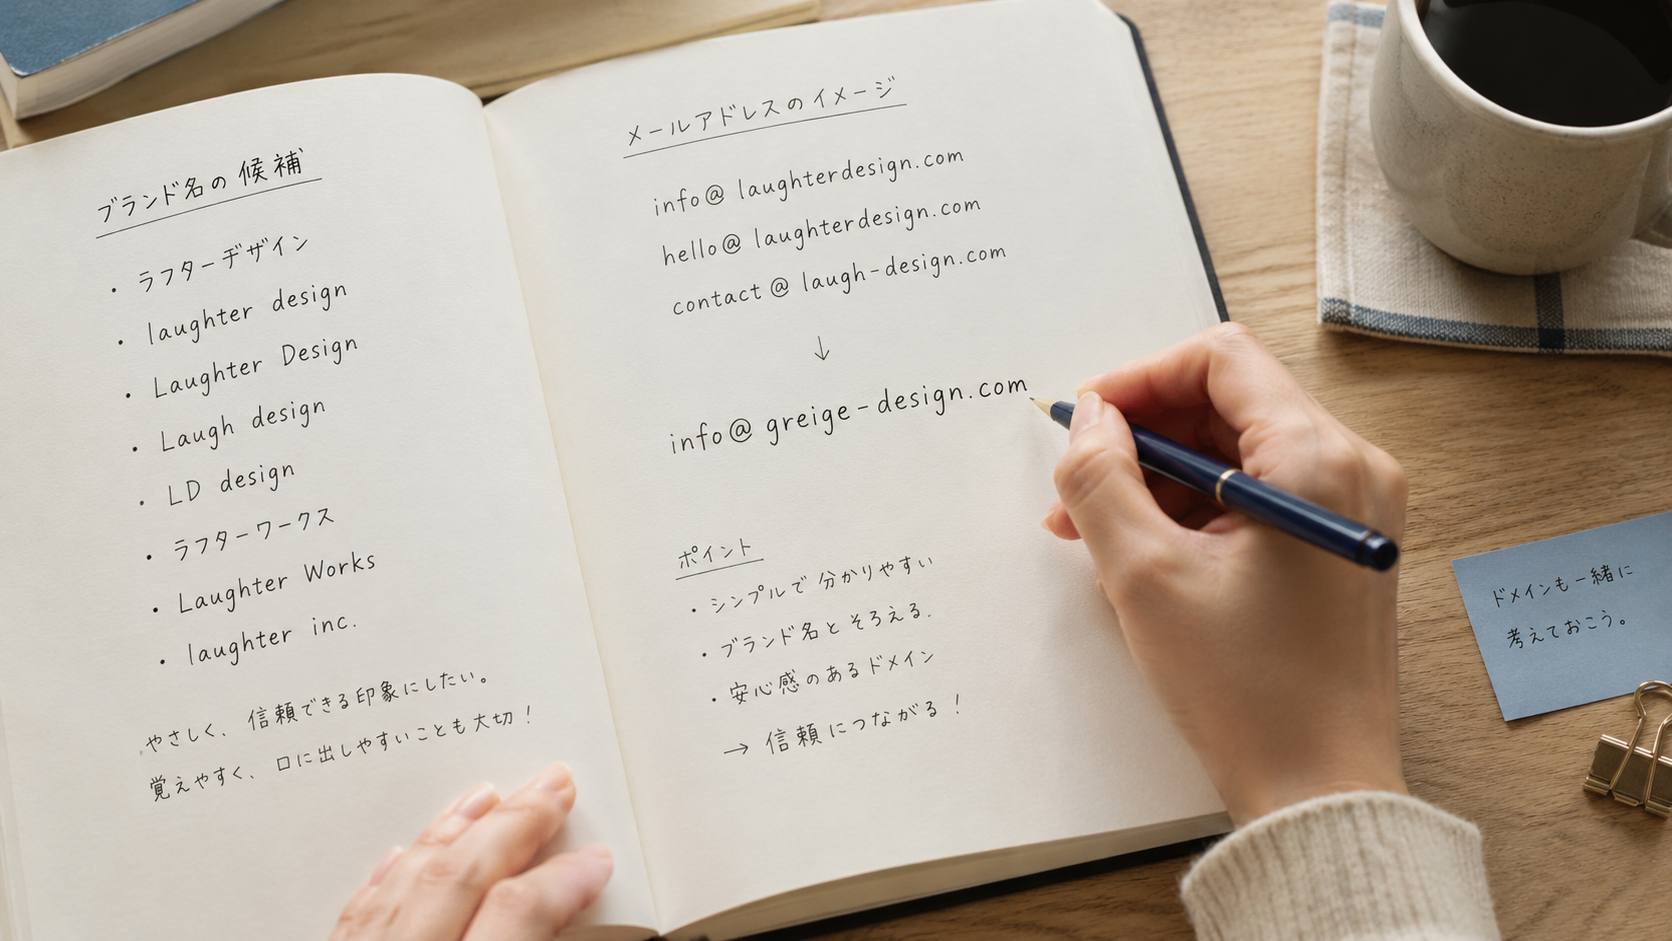 ブランド名の候補
・ラフターデザイン
・laughter design
・Laughter Design
・Laugh design
・LD design
・ラフターワークス
・Laughter Works
・laughter inc.
やさしく、信頼できる印象にしたい。
覚えやすく、口に出しやすいことも大切！
メールアドレスのイメージ
info@laughterdesign.com
hello@laughterdesign.com
contact@laugh-design.com
↓
info@greige-design.com
ポイント
・シンプルで分かりやすい
・ブランド名とそろえる.
・安心感のあるドメイン
→ 信頼につながる！
ドメインも一緒に
考えておこう。